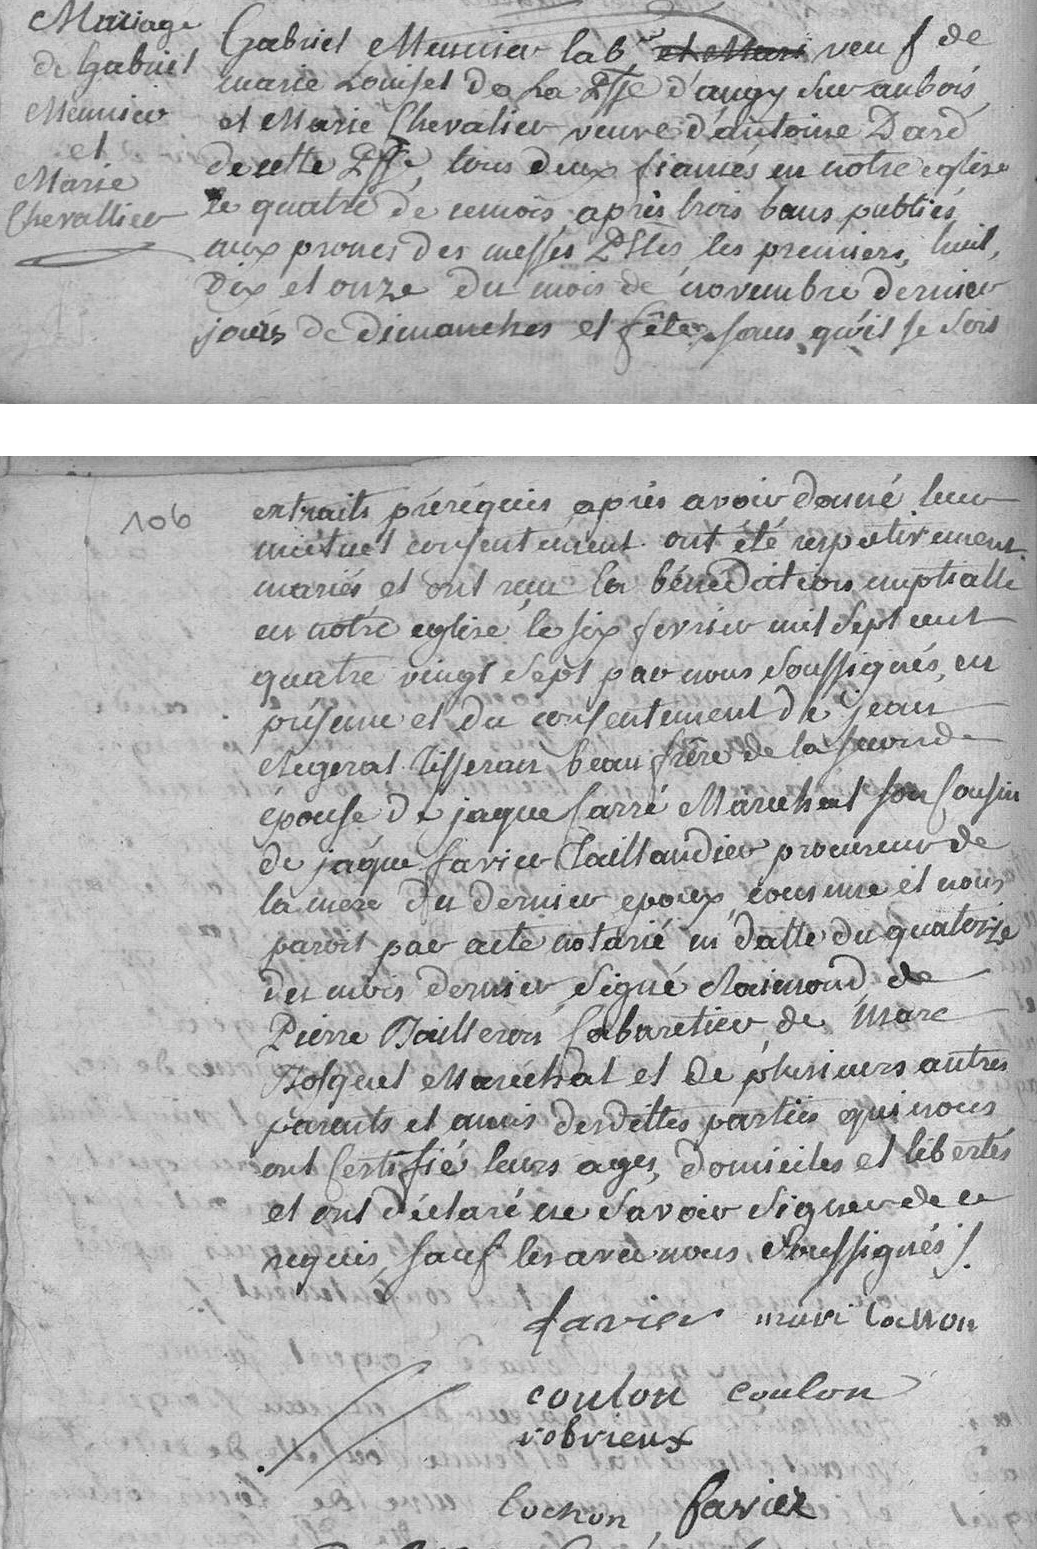 Mariage
de Gabriel
Meunier
et
Marie
Chevallier
Gabriel Meunier lab.r et Mari veuf de
marie Louiset de La Psse d'augy sur aubois
et Marie Chevalier veuve d'antoine Dard
de cette Psse, tous deux fiancés en notre eglise
le quatre de cemois, après trois bans publiés
aux prones des messes Pslles les premiers, huit,
Dix et onze du mois de novembre dernier
jours de dimanches et fêtes sans qu'il se soit
106
extraits préréquis après avoir donné leur
mutuel consentement ont été respectivement
mariés et ont reçu la bénédiction nuptialle
en notre eglise le six fevrier mil sept cent
quatre vingt sept par nous soussignés, en
présence et du consentement de jean
tisseran beau frère de la seconde
épouse de jaque Carré Maréchal son Cousin
de jaque favier Taillandier procureur de
la mere du dernier epoux, comme il nous
paroit par acte notarié en datte du quatorze
du mois dernier, signé Raimond, de
Pierre Taillerois Cabaretier, de Marc
Bosquet Maréchal et de plusieurs autres
parents et amis desdittes parties qui nous
ont Certifié leurs ages, domiciles et libertés
et ont déclaré ne savoir signer de ce
requis, sauf les avec nous soussignés ./.
favier cochon
coulon coulon
robrieux
cochon favier